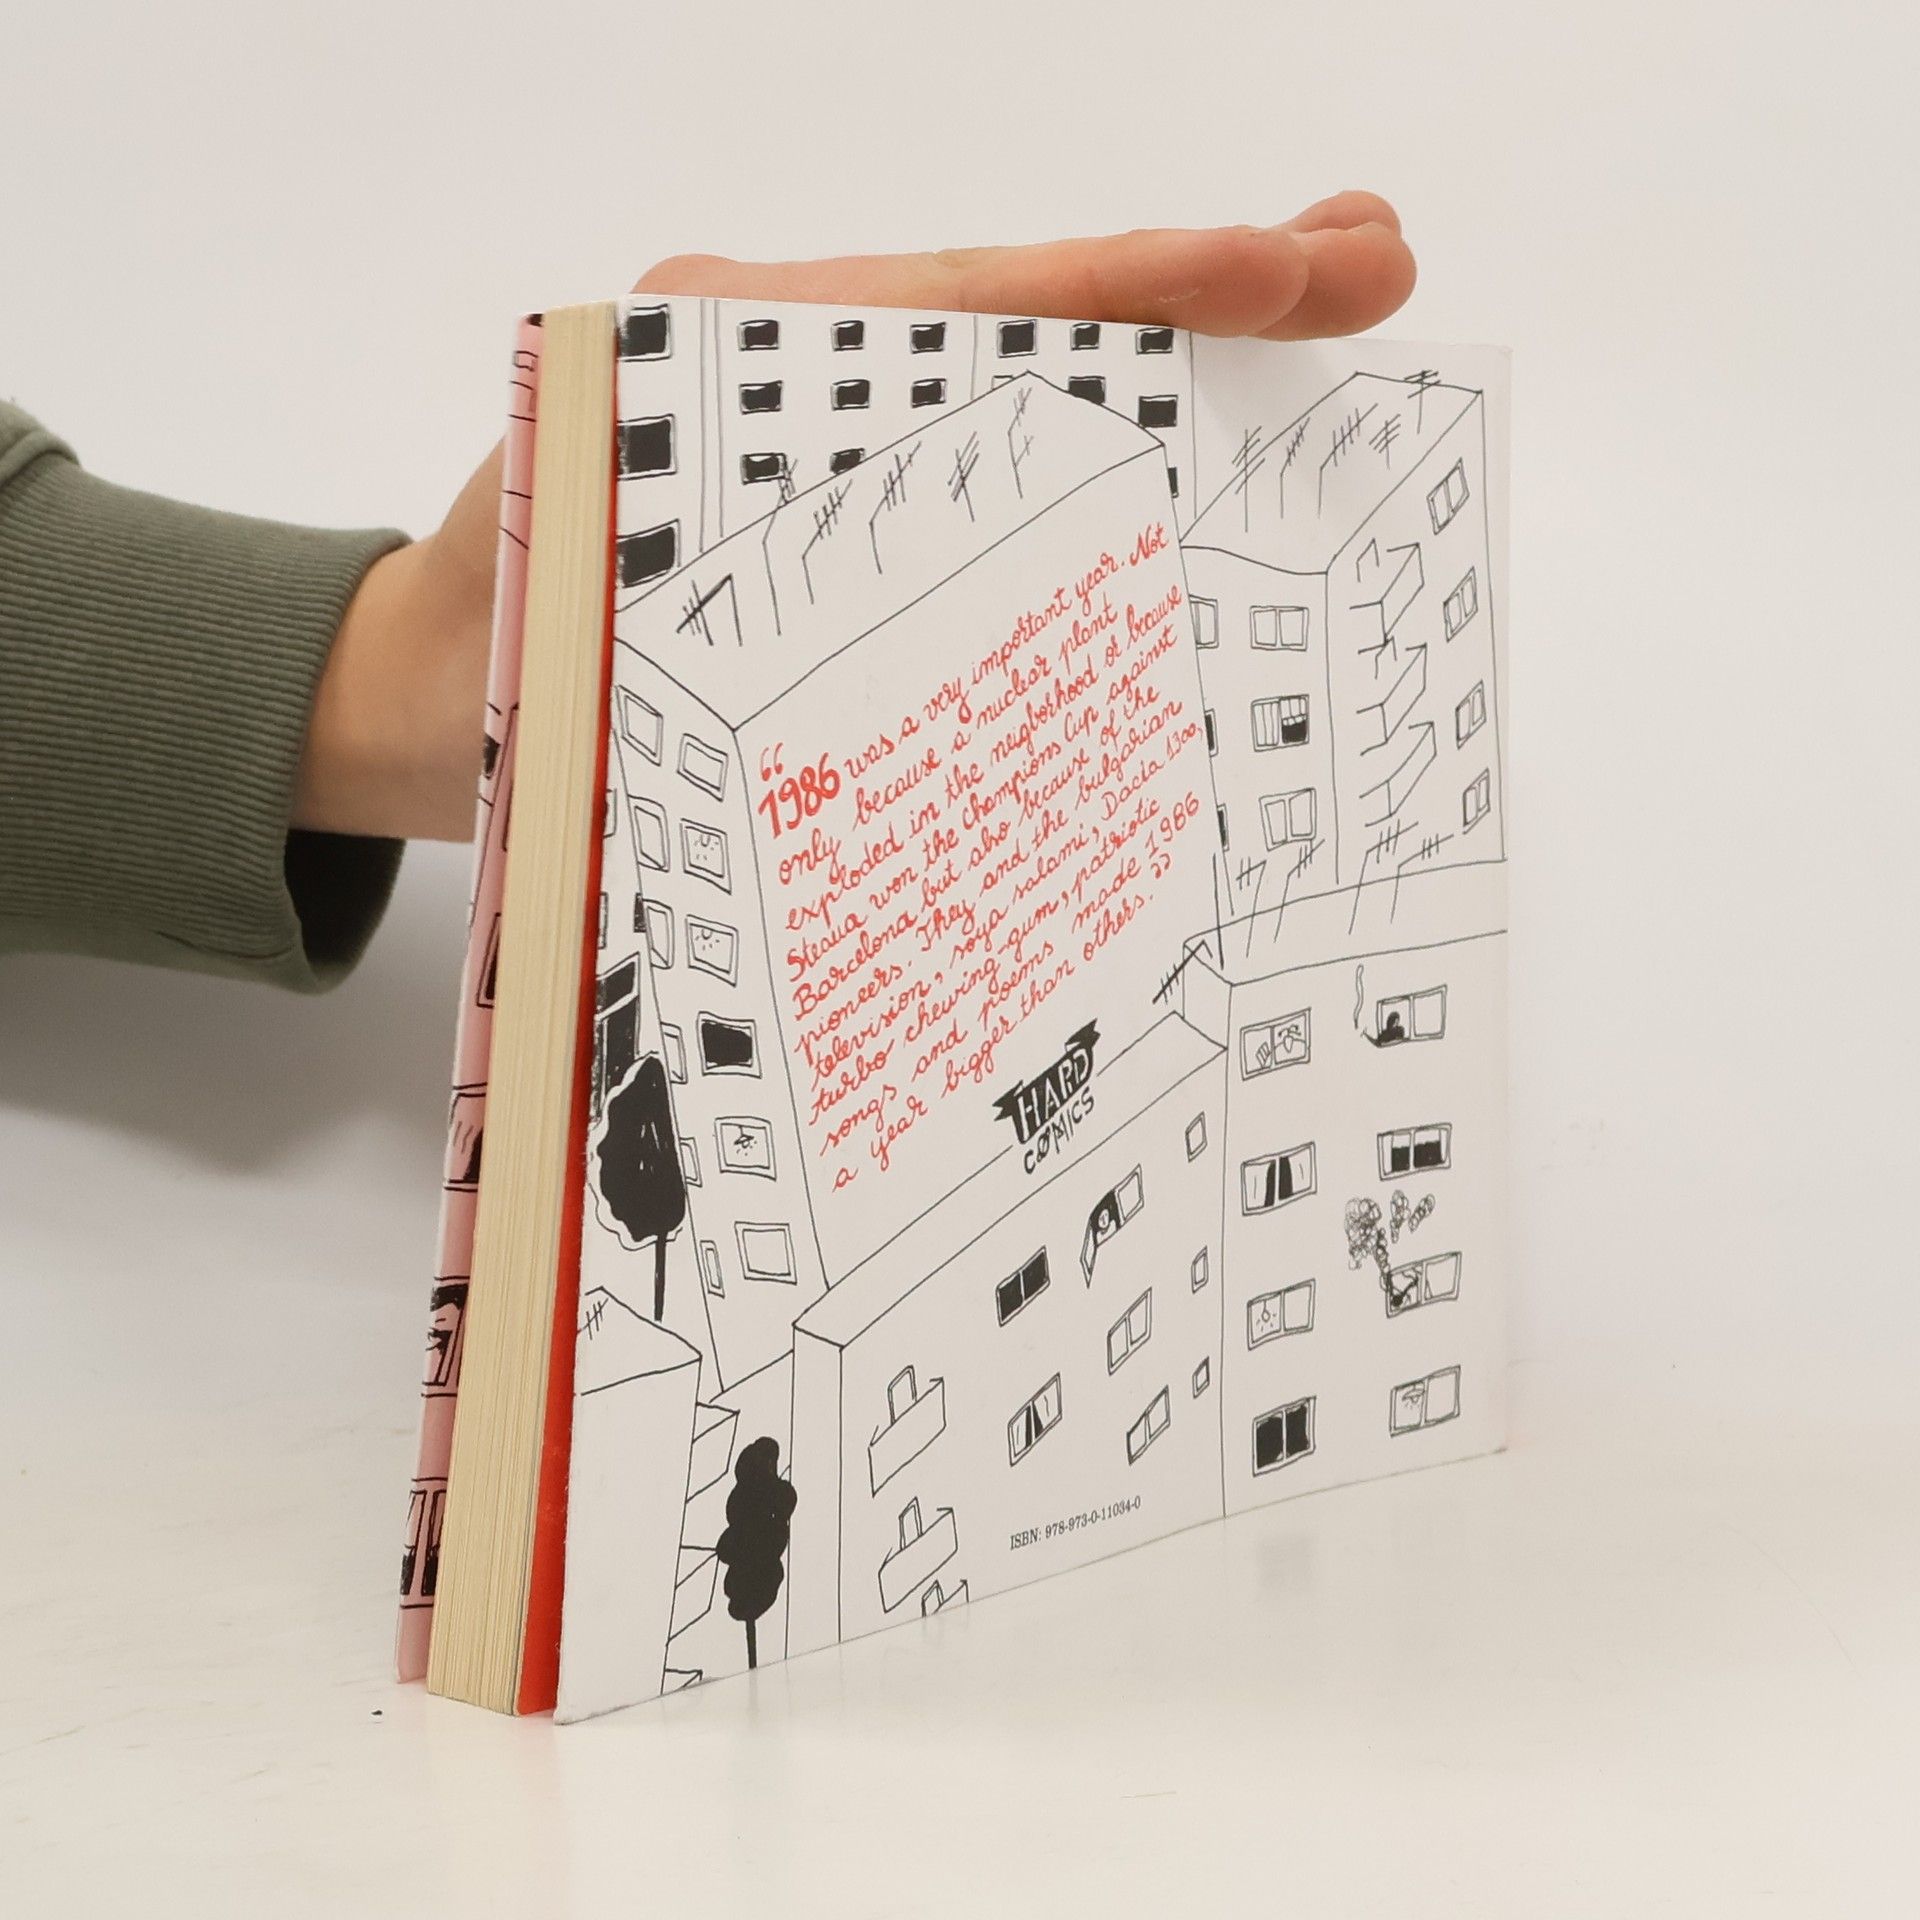 “
1986 was a very important year. Not
only because a nuclear plant
exploded in the neigborhood or because
Steaua won the Champions Cup against
Barcelona but also because of the
pioneers. They and the bulgarian
television, soya salami, Dacia 1300,
turbo chewing-gum, patriotic
songs and poems made 1986
a year bigger than others. ”
HARD
COMICS
ISBN: 978-973-0-11034-0